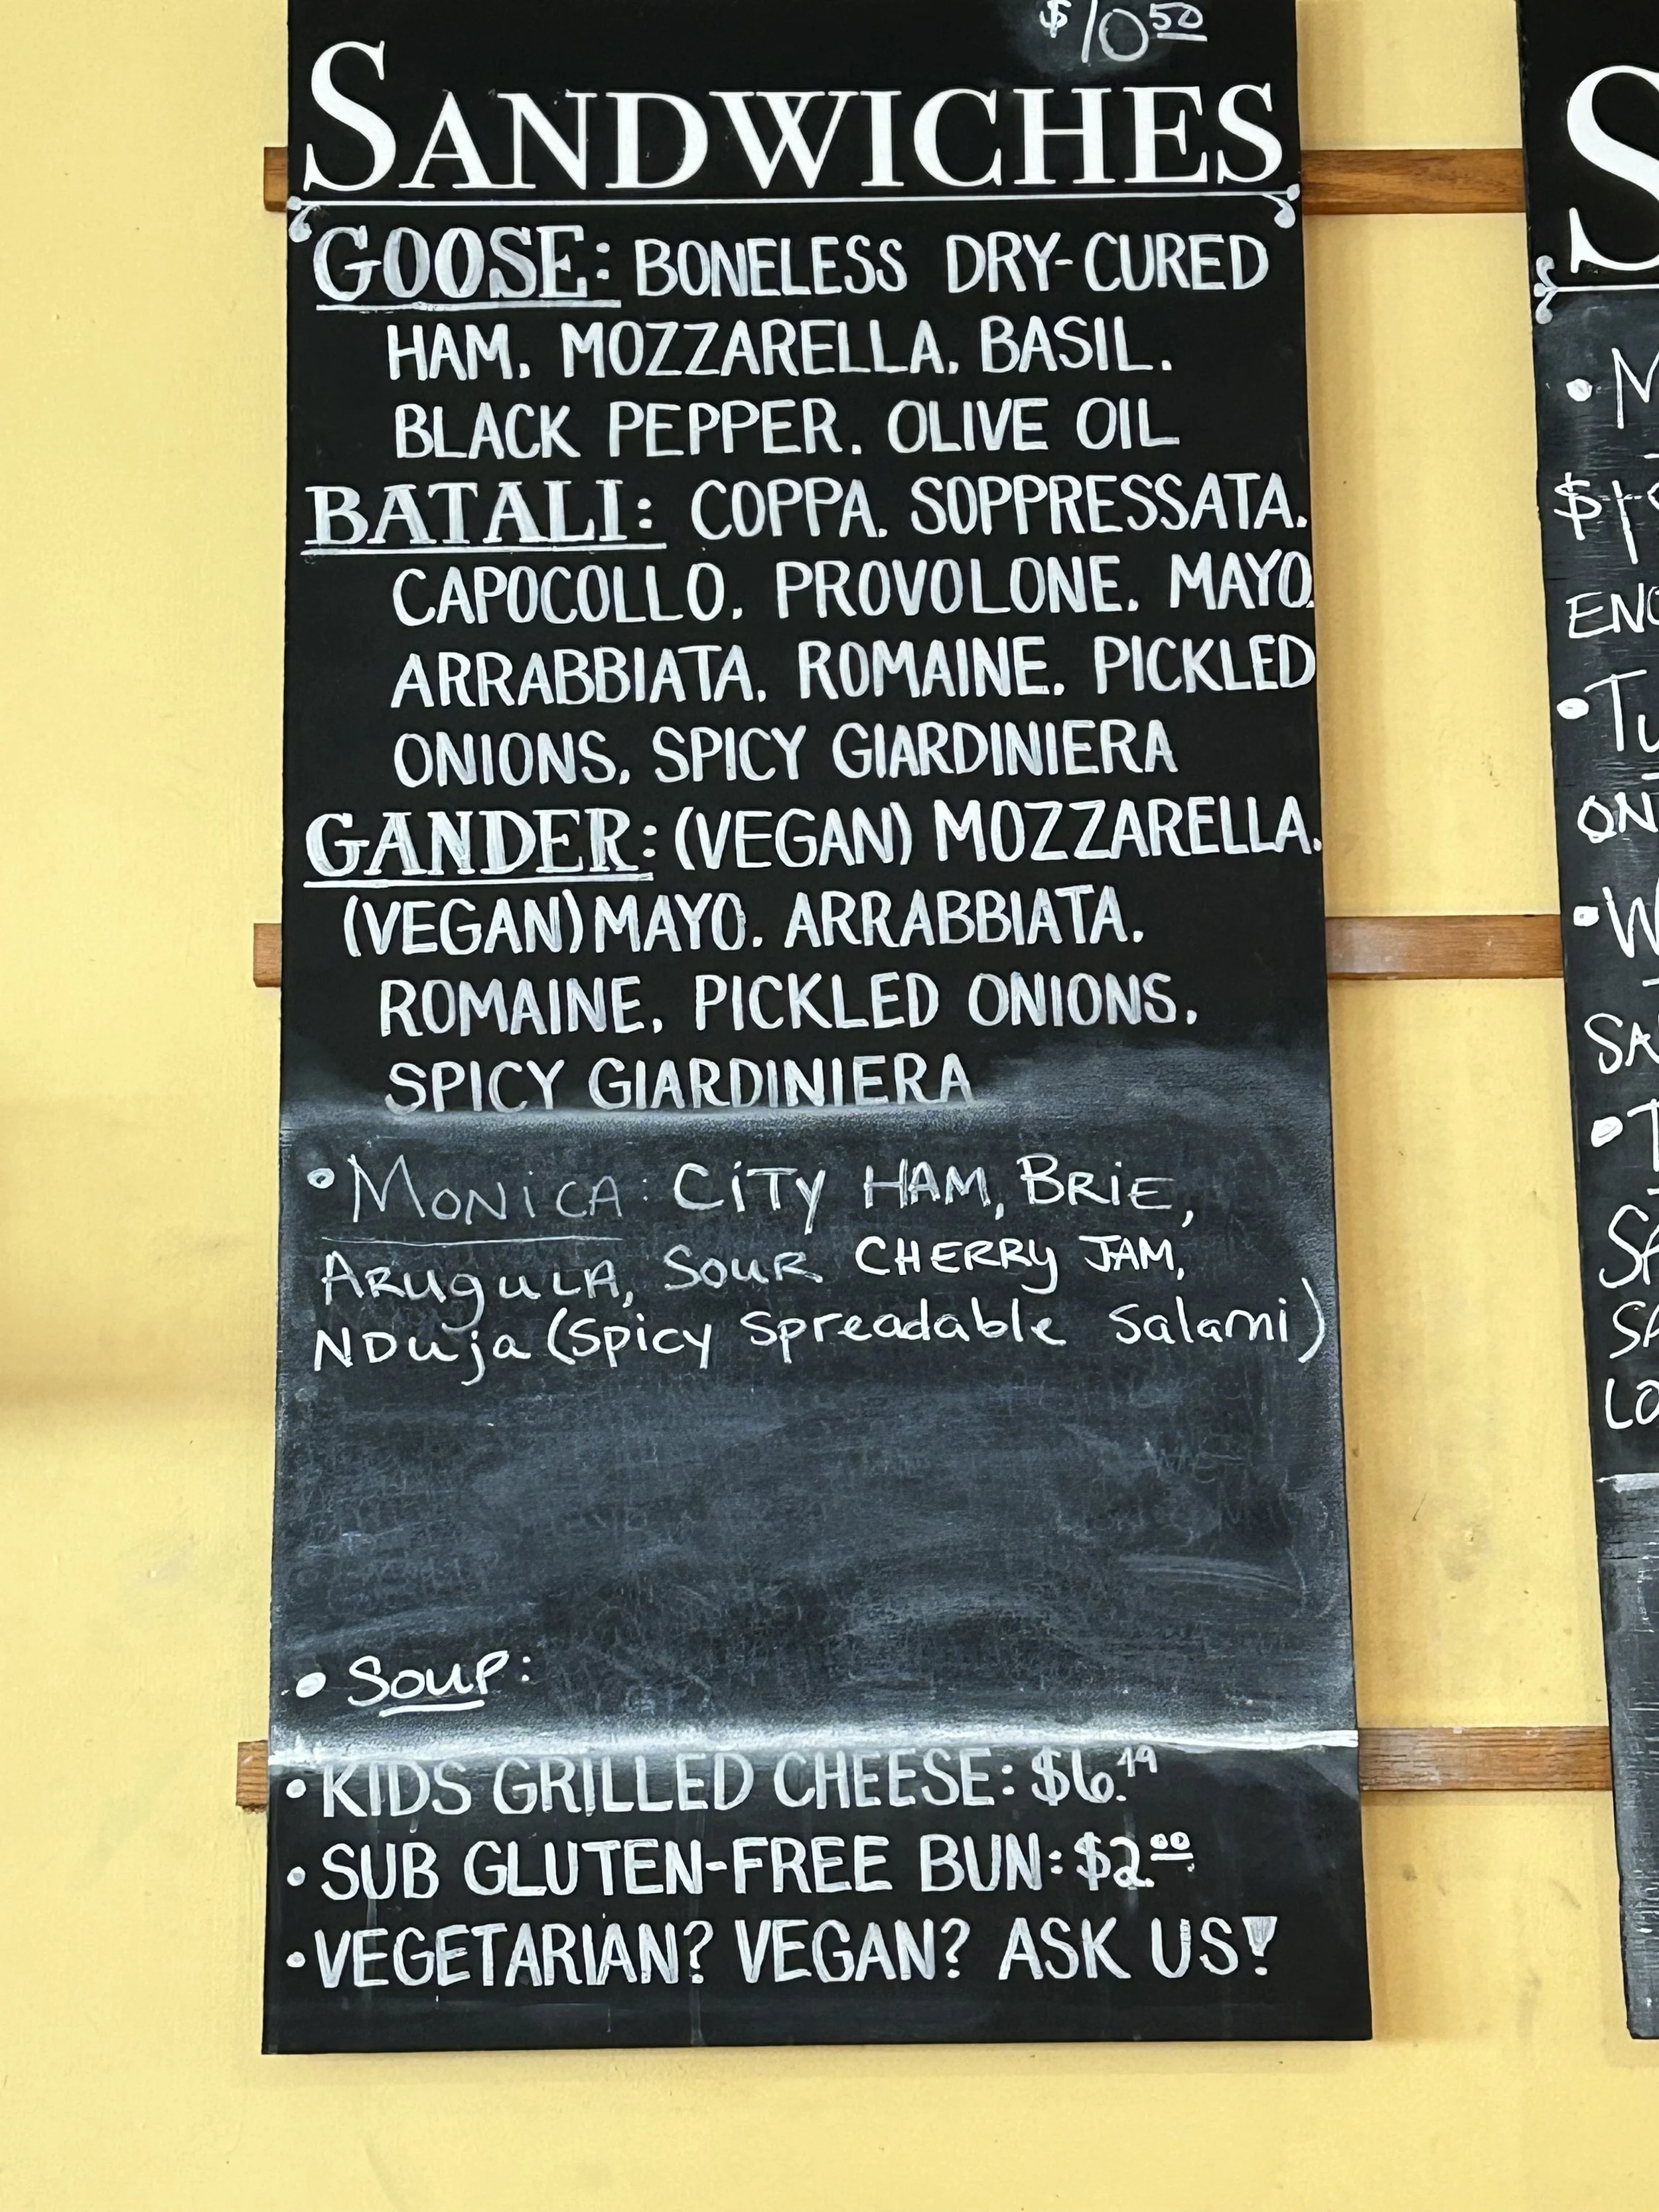 $10.50
SANDWICHES
GOOSE: BONELESS DRY-CURED
HAM, MOZZARELLA, BASIL,
BLACK PEPPER, OLIVE OIL
BATALI: COPPA, SOPPRESSATA,
CAPOCOLLO, PROVOLONE, MAYO,
ARRABBIATA, ROMAINE, PICKLED
ONIONS, SPICY GIARDINIERA
GANDER: (VEGAN) MOZZARELLA,
(VEGAN) MAYO, ARRABBIATA,
ROMAINE, PICKLED ONIONS,
SPICY GIARDINIERA
• MONICA: CiTy HAM, BRiE,
ARUgULA, SOUR CHERRy JAM,
NDuja (Spicy Spreadable Salami)
• Soup:
• KIDS GRILLED CHEESE: $6.49
• SUB GLUTEN-FREE BUN: $2.00
• VEGETARIAN? VEGAN? ASK US!